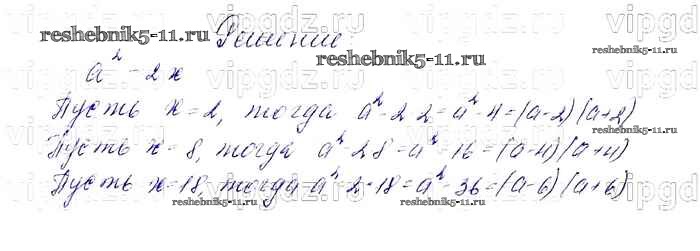 Решение
a² - 2x
Пусть x = 2, тогда a² - 2·2 = a² - 4 = (a - 2)(a + 2)
Пусть x = 8, тогда a² - 2·8 = a² - 16 = (a - 4)(a + 4)
Пусть x = 18, тогда a² - 2·18 = a² - 36 = (a - 6)(a + 6)
reshebnik5-11.ru
reshebnik5-11.ru
reshebnik5-11.ru
reshebnik5-11.ru
reshebnik5-11.ru
vipgdz.ru
vipgdz.ru
vipgdz.ru